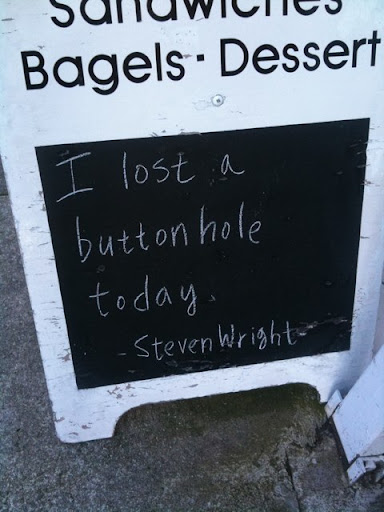 Sandwiches
Bagels - Dessert
I lost a
buttonhole
today.
- Steven Wright